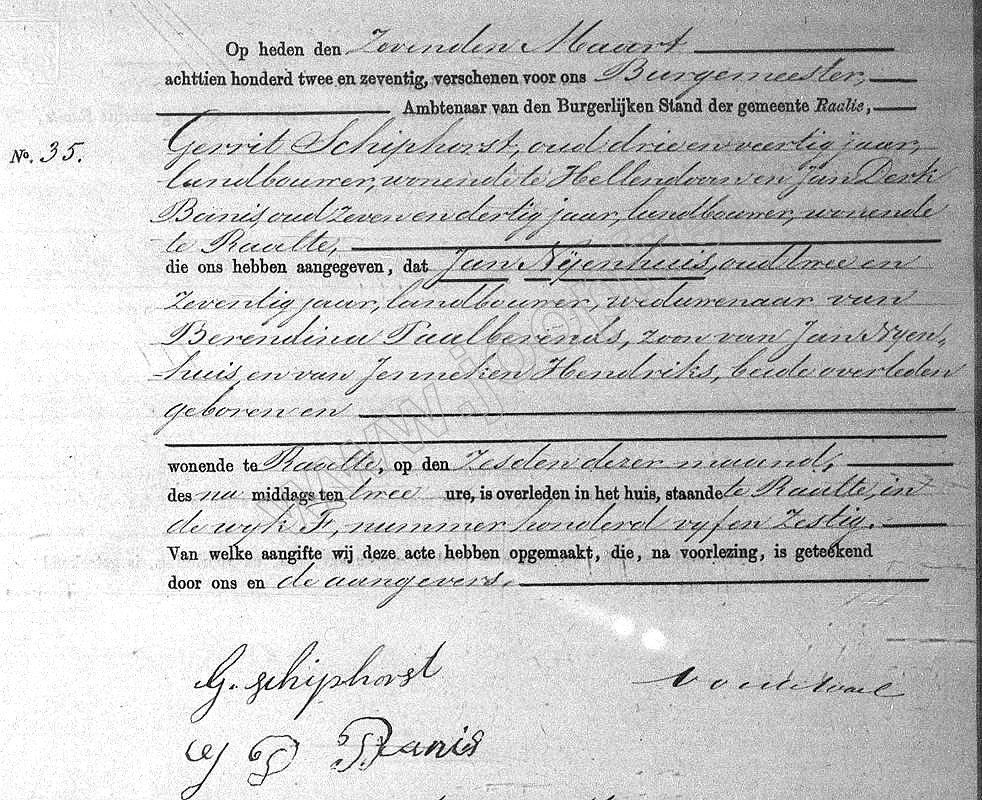 Op heden den Zevenden Maart
achttien honderd twee en zeventig, verschenen voor ons Burgemeester,
Ambtenaar van den Burgerlijken Stand der gemeente Raalte,
No. 35.
Gerrit Schiphorst, oud drie en veertig jaar,
landbouwer, wonende te Hellendoorn en Jan Derk
Banis, oud zeven en dertig jaar, landbouwer, wonende
te Raalte,
die ons hebben aangegeven, dat Jan Nijenhuis, oud twee en
zeventig jaar, landbouwer, weduwenaar van
Berendina Paalberends, zoon van Jan Nyen,
huis, en van Jenneken Hendriks, beide overleden
geboren en
wonende te Raalte, op den Zesden dezer maand,
des na middags ten twee ure, is overleden in het huis, staande te Raalte, in
de wyk F, nummer honderd vyf en Zestig.
Van welke aangifte wij deze acte hebben opgemaakt, die, na voorlezing, is geteekend
door ons en de aangevers.
G. Schiphorst
J D Banis